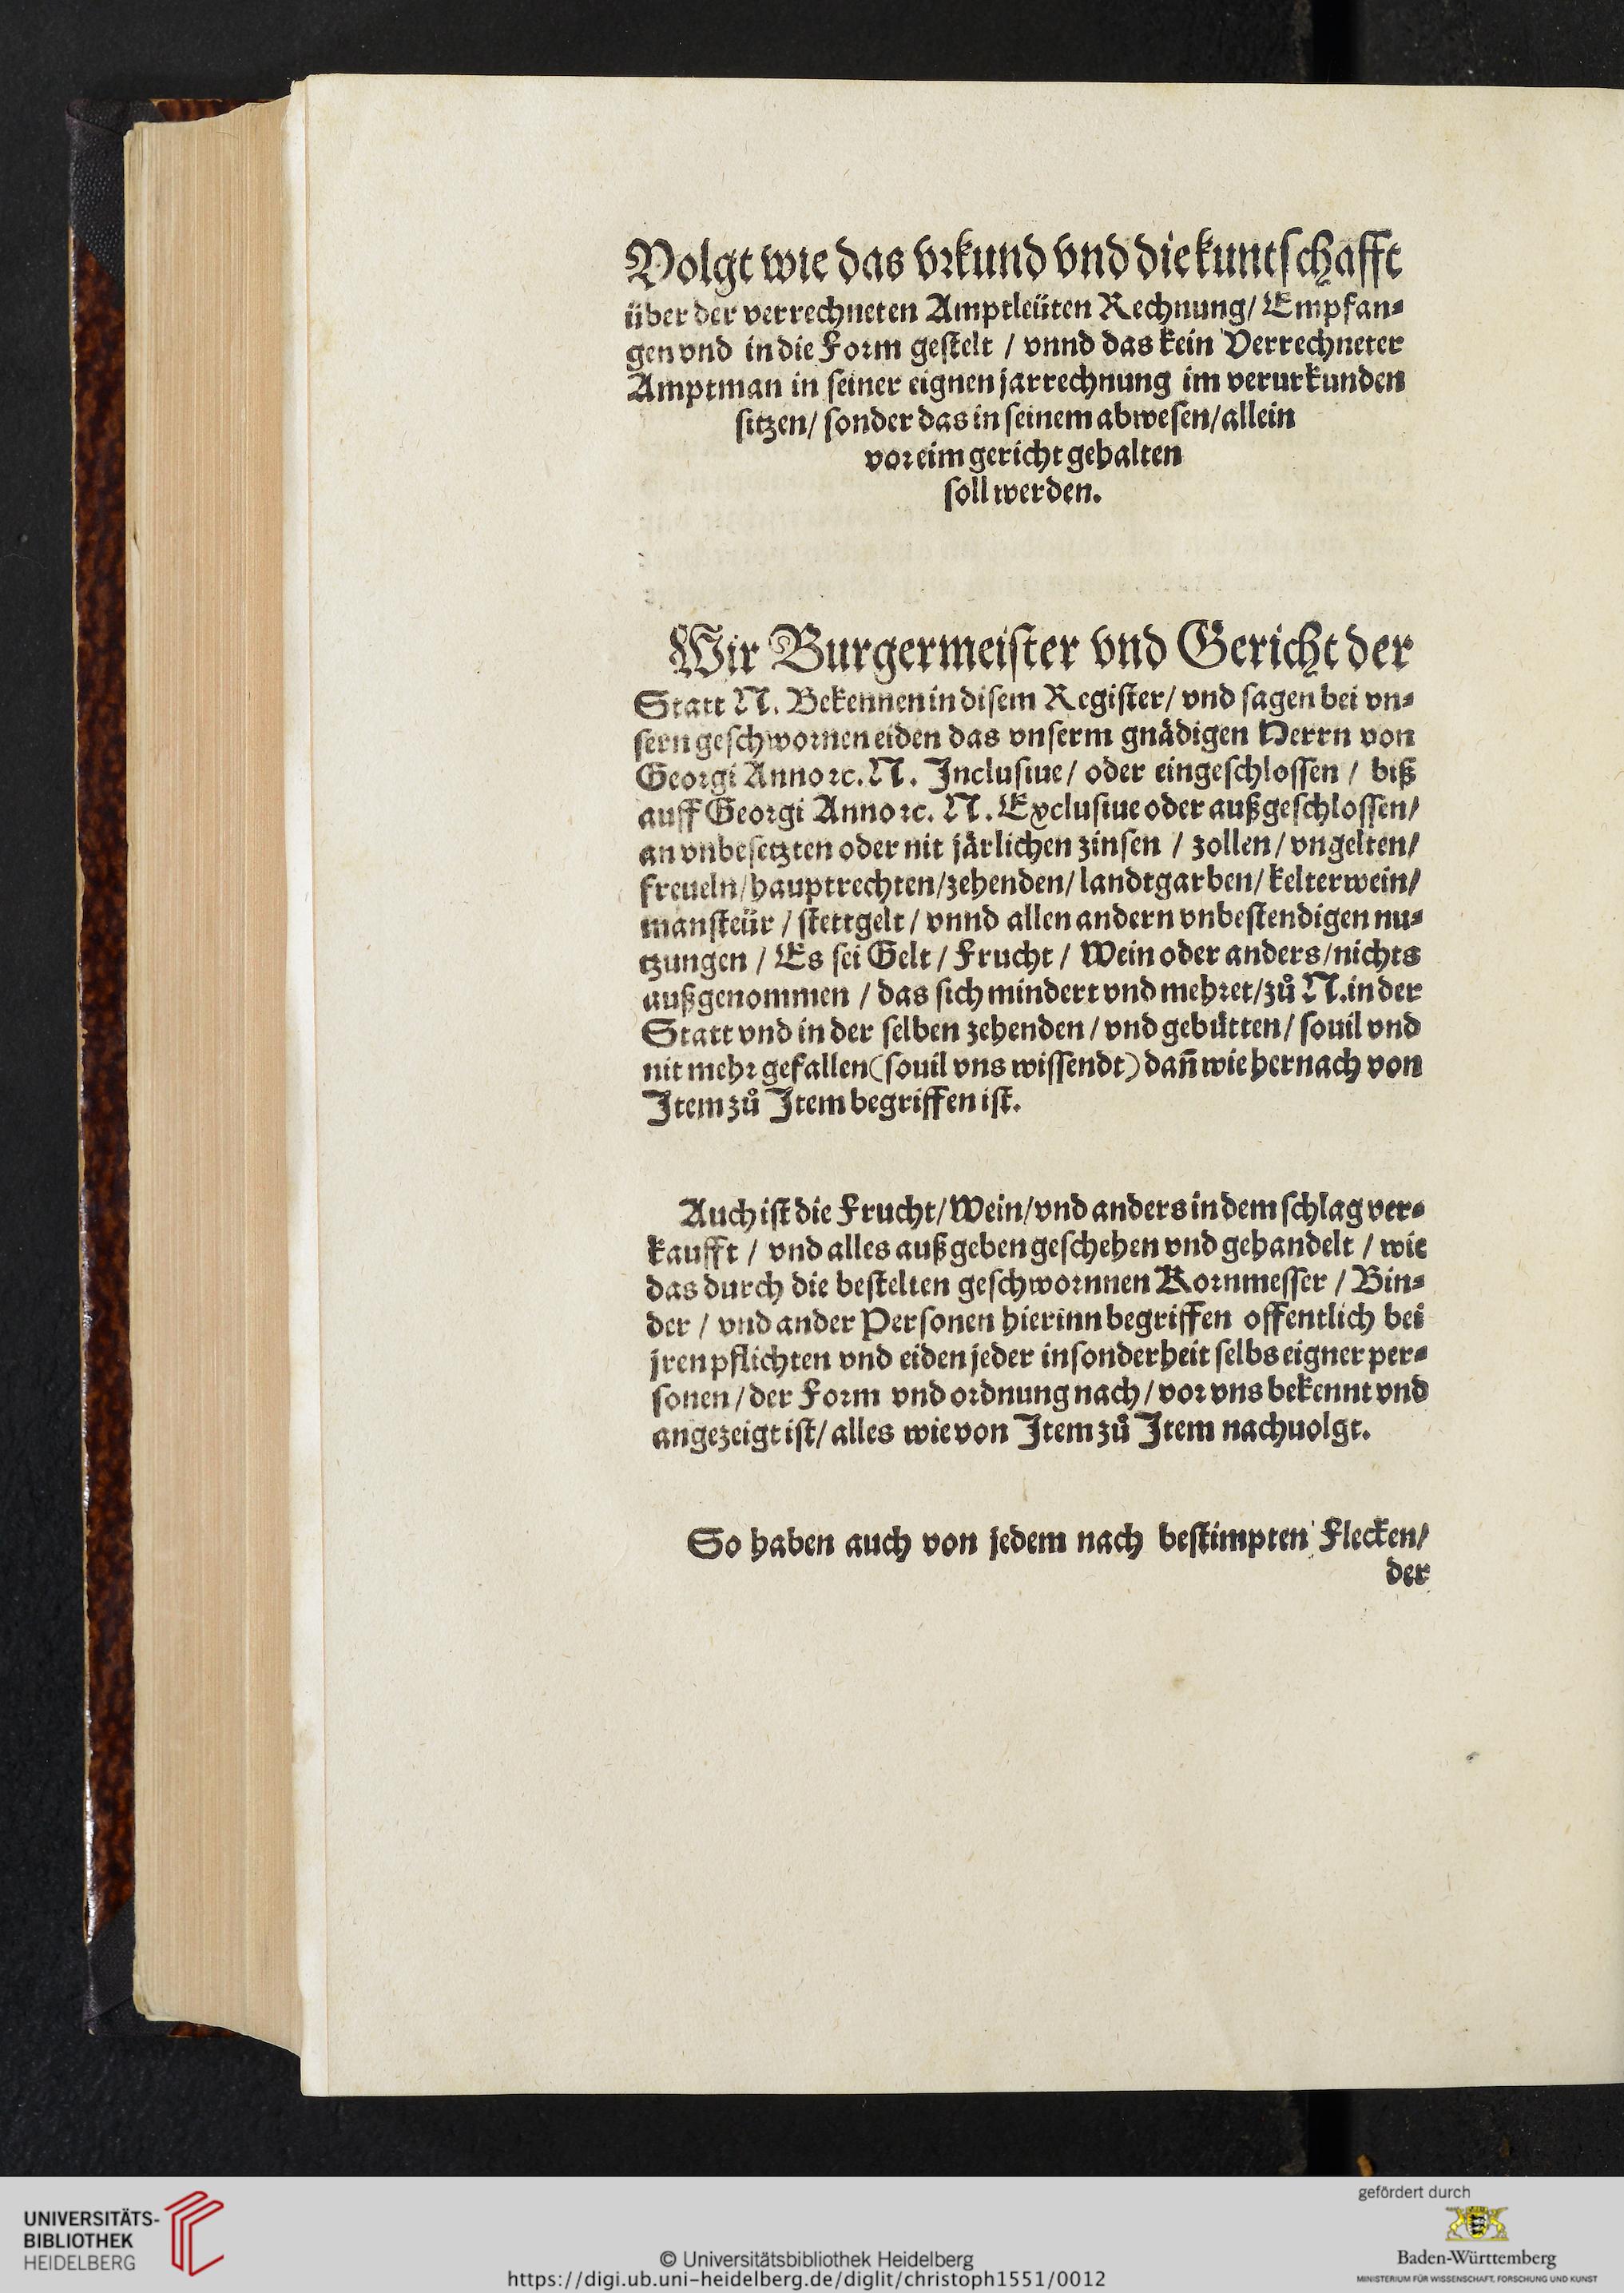 Volgt wie das vrkund vnd die kuntschafft
über der verrechneten Amptleüten Rechnung/ Empfan⸗
gen vnd in die Form gestelt / vnnd das kein Verrechneter
Amptman in seiner eignen jarrechnung im verurkunden
sitzen/ sonder das in seinem abwesen/ allein
vor eim gericht gehalten
soll werden.
Wir Burgermeister vnd Gericht der
Statt N. Bekennen in disem Register/ vnd sagen bei vn⸗
sern geschwornen eiden das vnserm gnädigen Herrn von
Georgi Anno ꝛc. N. Inclusiue/ oder eingeschlossen / biß
auff Georgi Anno ꝛc. N. Exclusiue oder außgeschlossen/
an vnbesetzten oder nit järlichen zinsen / zollen/ vngelten/
freueln/ hauptrechten/ zehenden/ landtgarben/ kelterwein/
mansteür / stettgelt/ vnnd allen andern vnbestendigen nu⸗
tzungen / Es sei Gelt/ Frucht / Wein oder anders/ nichts
außgenommen / das sich mindert vnd mehret/ zů N. in der
Statt vnd in der selben zehenden/ vnd gebütten/ souil vnd
nit mehr gefallen (souil vns wissendt) dañ wie hernach von
Item zů Item begriffen ist.
Auch ist die Frucht/ Wein/ vnd anders in dem schlag ver⸗
kaufft / vnd alles außgeben geschehen vnd gehandelt / wie
das durch die bestelten geschwornnen Kornmesser / Bin⸗
der / vnd ander Personen hierinn begriffen offentlich bei
jren pflichten vnd eiden jeder insonderheit selbs eigner per⸗
sonen/ der Form vnd ordnung nach/ vor vns bekennt vnd
angezeigt ist/ alles wie von Item zů Item nachuolgt.
So haben auch von jedem nach bestimpten Flecken/
der
UNIVERSITÄTS-
BIBLIOTHEK
HEIDELBERG
© Universitätsbibliothek Heidelberg
https://digi.ub.uni-heidelberg.de/diglit/christoph1551/0012
gefördert durch
Baden-Württemberg
MINISTERIUM FÜR WISSENSCHAFT, FORSCHUNG UND KUNST